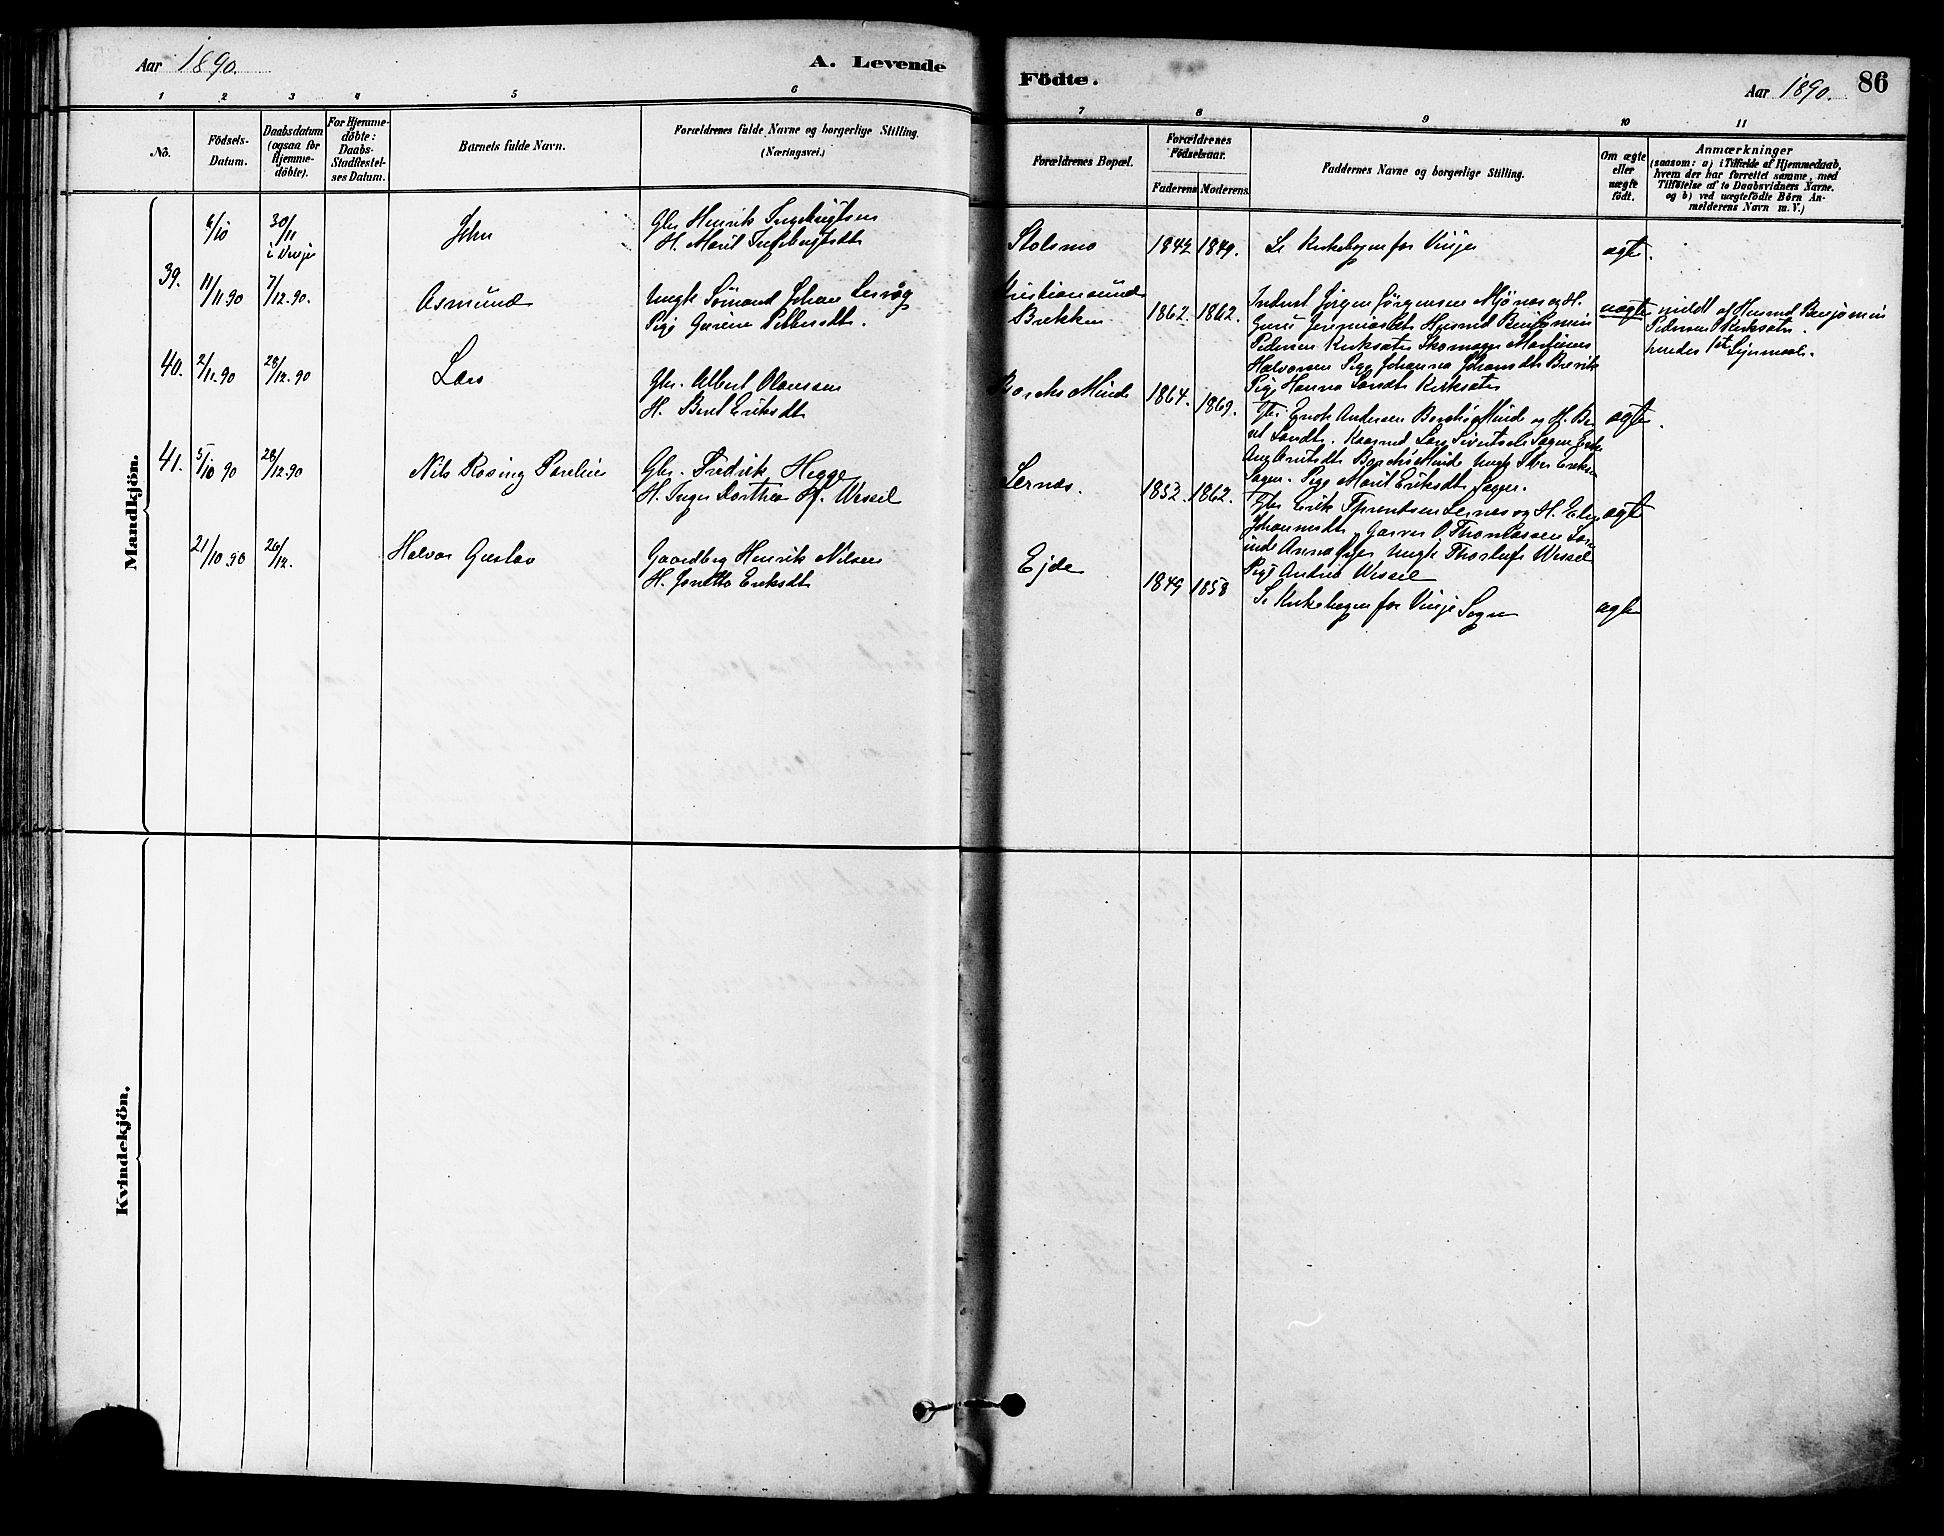 Aar 1890.
A. Levende
Födte.
Aar 1890.
86
1 2 3 4 5 6 7 8 9 10 11
No.
Födsels-
Datum.
Daabsdatum
(ogsaa for
Hjemme-
döbte).
For Hjemme-
döbte:
Daabs-
Stadfæstel-
ses Datum.
Barnets fulde Navn.
Forældrenes fulde Navne og borgerlige Stilling.
(Næringsvei.)
Forældrenes Bopæl.
Forældrenes
Födselsaar.
Faderens Moderens.
Faddernes Navne og borgerlige Stilling.
Om ægte
eller
uægte
födt.
Anmærkninger
(saasom: a) i Tilfælde af Hjemmedaab,
hvem der har forrettet samme, med
Tilföielse af to Daabsvidners Navne.
og b) ved uægtefödte Börn An-
melderens Navn m. V.)
Mandkjön.
6/10
30/11
i Vinje
John
Gbr Henrik Ingebrigtsen
H. Marit Ingebrigtsdt
Stolsmo
1842 1849.
Se Kirkebogen for Vinje
ægte.
39.
11/11 90
7/12.90.
Asmund
Ungk Sömand Johan Lervåg
Pige Gurine Pettersdt.
Kristiansund
Brekken
1862. 1862.
Inderst Jørgen Jørgensen Mjönes og H.
Guri Jeremiasdt Husmd Benjamin
Pedersen Kirksæter Skomager Martinus
Halvorsen Pige Johanna Johansdt Brevik
Pige Hanna Sandt Kirksæter
uægte
meldt af Husmd Benjamin
Pedersen Kirksæter.
hendes 1st Lejermaal.
40.
2/11.90
28/12.90
Lars
Gbr. Albert Olaussen
H. Beret Eriksdt
Borchs Minde
1864. 1869.
Gbr. Erik Andersen Borchs Minde og H. Be
rit Larsdt. Kaarmd Lars Sivertsen
Borchs Minde Ungk
Pige Marit Eriksdt
ægte.
41.
5/10 90
28/12.90
Nils Rosing Parelius
Gbr. Fredrik Hegge
H. Inger Dorthea f. Wessel
Lernæs.
1852. 1862.
Gbr Erik Lernæs og H.
Johannesdt, Garver O. Thomassen
Anna Ungk Thorleif Wessel
Pige Andrea Wessel
ægte
21/10 90
26/12.
Halvor Gustav
Gaardbg Henrik Nilsen
H. Jonetta Eriksdt
Ejde
1849 1858
Se Kirkebogen for Vinje Sogn
ægte
Kvindekjön.